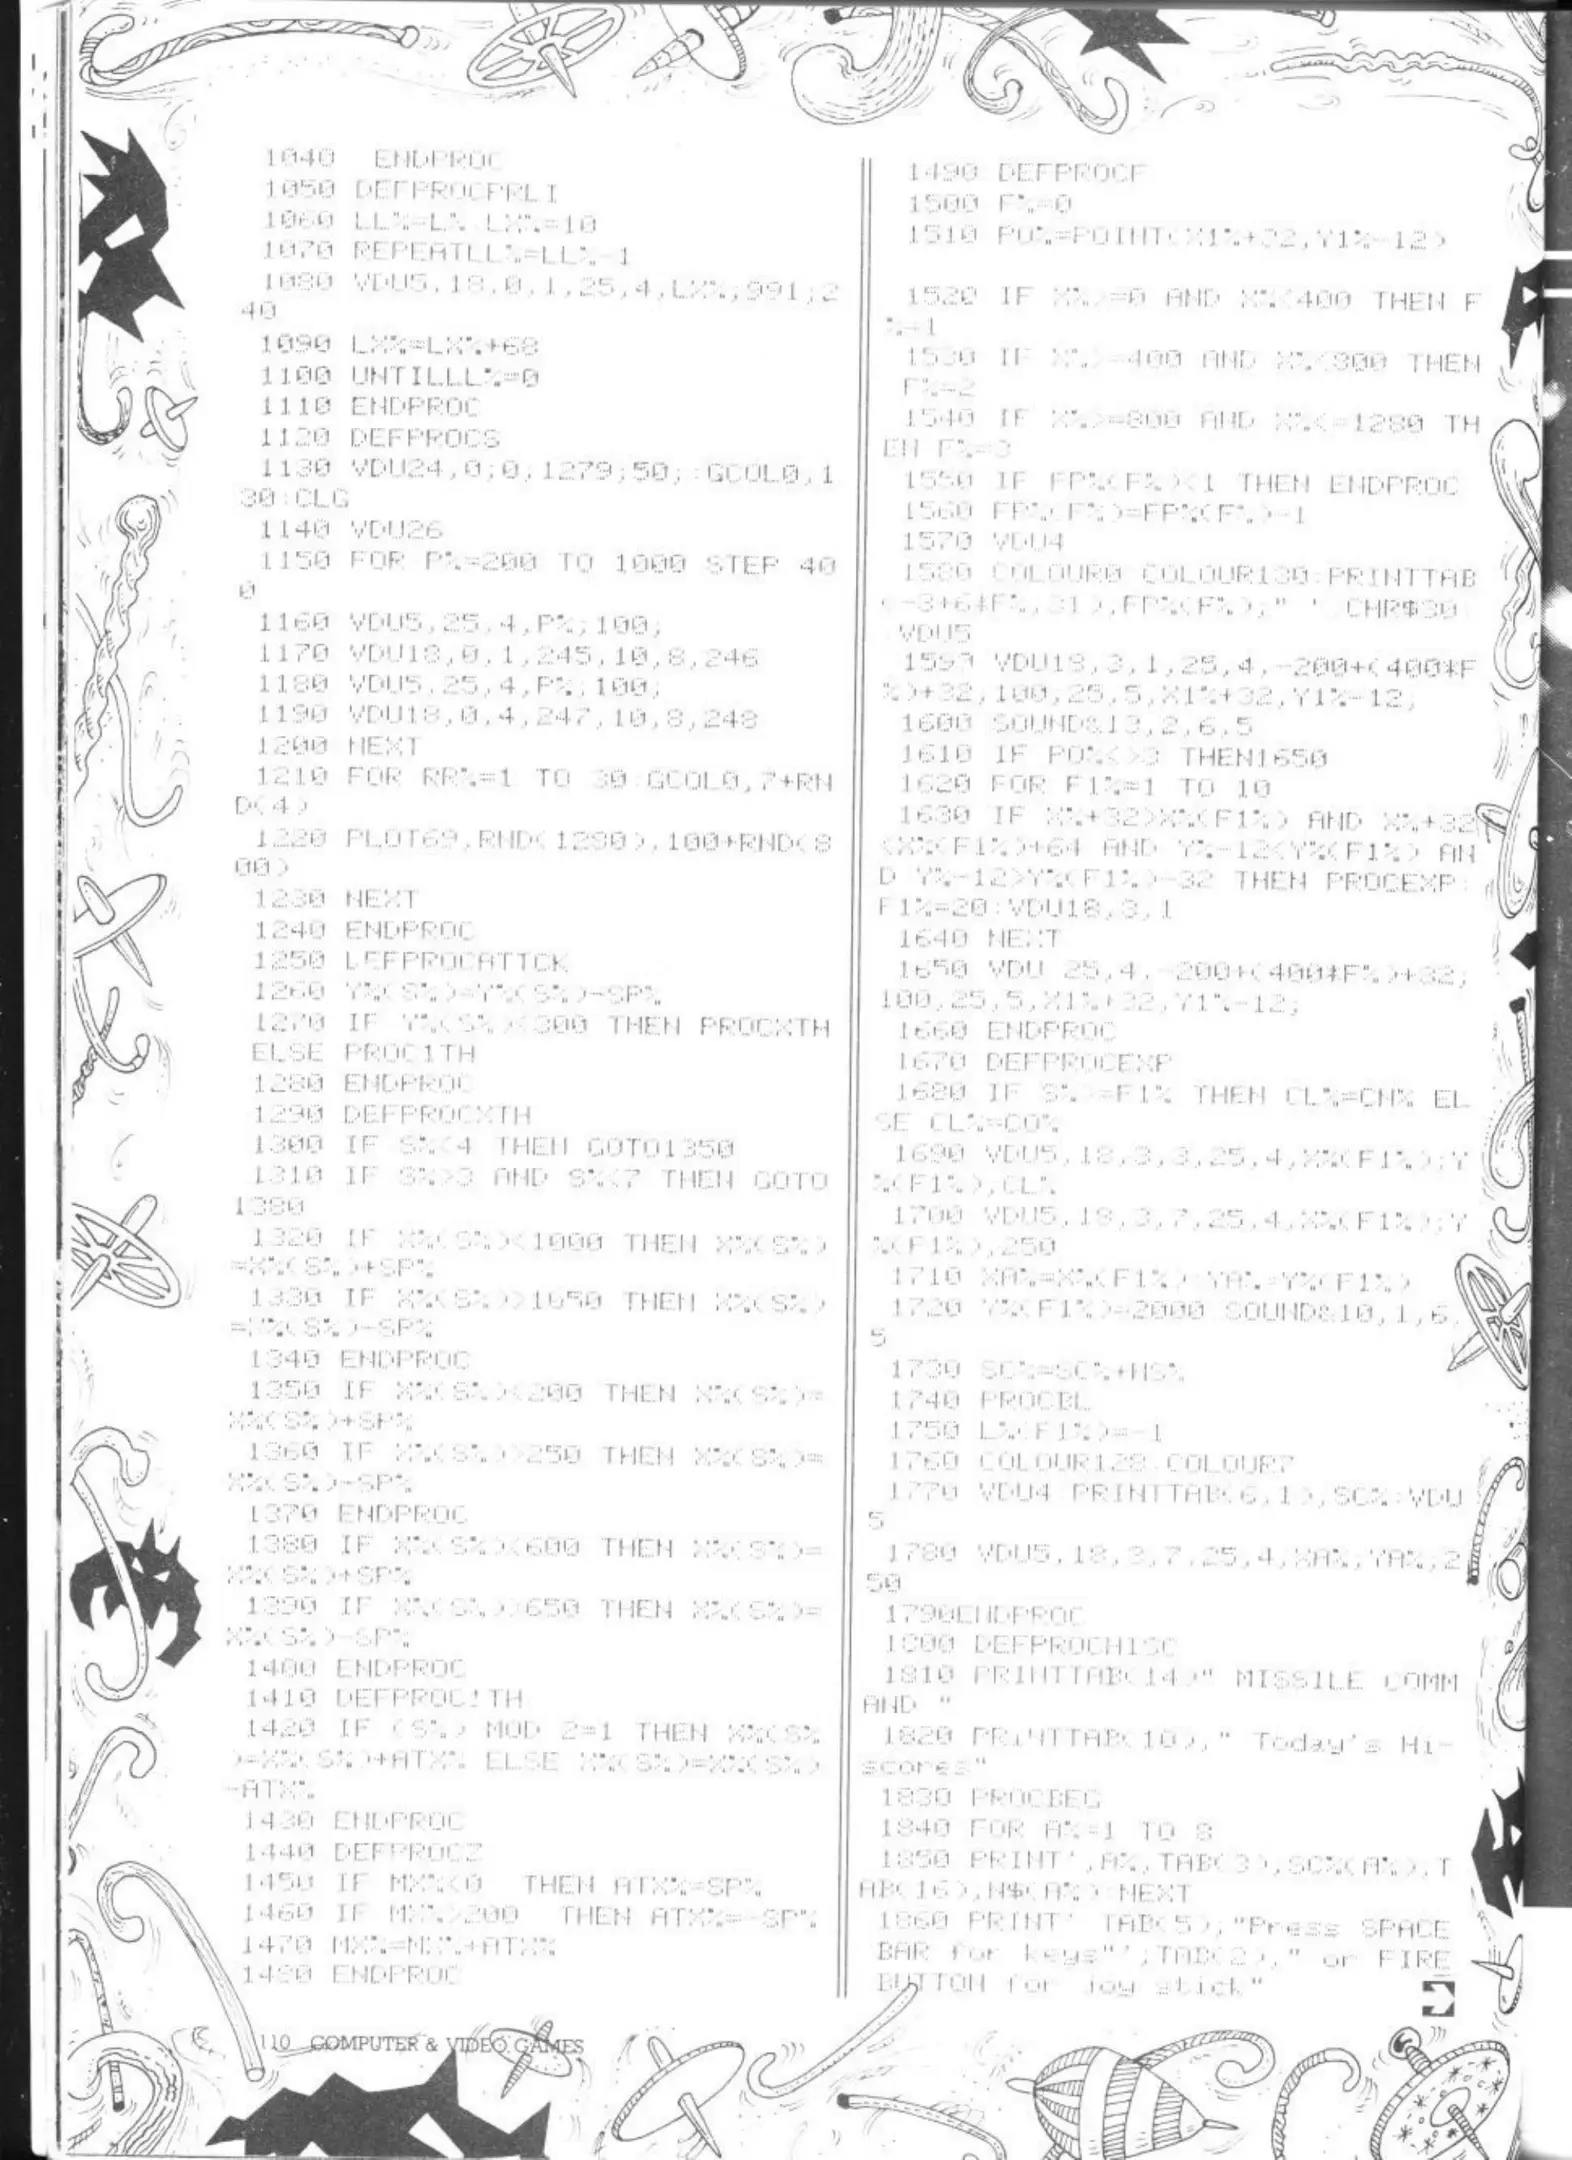 1040  ENDPROC
1050 DEFPROCPRLI
1060 LL%=L%:LX%=10
1070 REPEATLL%=LL%-1
1080 VDU5,18,0,1,25,4,LX%;991;2
40
1090 LX%=LX%+68
1100 UNTILLL%=0
1110 ENDPROC
1120 DEFPROCS
1130 VDU24,0;0;1279;50;:GCOL0,1
30:CLG
1140 VDU26
1150 FOR P%=200 TO 1000 STEP 40
0
1160 VDU5,25,4,P%;100;
1170 VDU18,0,1,245,10,8,246
1180 VDU5,25,4,P%;100;
1190 VDU18,0,4,247,10,8,248
1200 NEXT
1210 FOR RR%=1 TO 30:GCOL0,7+RN
D(4)
1220 PLOT69,RND(1280),100+RND(8
00)
1230 NEXT
1240 ENDPROC
1250 DEFPROCATTCK
1260 Y%(S%)=Y%(S%)-SP%
1270 IF Y%(S%)<300 THEN PROCXTH
ELSE PROC1TH
1280 ENDPROC
1290 DEFPROCXTH
1300 IF S%<4 THEN GOTO1350
1310 IF S%>3 AND S%<7 THEN GOTO
1380
1320 IF X%(S%)<1000 THEN X%(S%)
=X%(S%)+SP%
1330 IF X%(S%)>1050 THEN X%(S%)
=X%(S%)-SP%
1340 ENDPROC
1350 IF X%(S%)<200 THEN X%(S%)=
X%(S%)+SP%
1360 IF X%(S%)>250 THEN X%(S%)=
X%(S%)-SP%
1370 ENDPROC
1380 IF X%(S%)<600 THEN X%(S%)=
X%(S%)+SP%
1390 IF X%(S%)>650 THEN X%(S%)=
X%(S%)-SP%
1400 ENDPROC
1410 DEFPROC1TH
1420 IF (S%) MOD 2=1 THEN X%(S%
)=X%(S%)+ATX% ELSE X%(S%)=X%(S%)
-ATX%
1430 ENDPROC
1440 DEFPROCZ
1450 IF MX%<0  THEN ATX%=SP%
1460 IF MX%>200  THEN ATX%=-SP%
1470 MX%=MX%+ATX%
1480 ENDPROC
1490 DEFPROCF
1500 F%=0
1510 PO%=POINT(X1%+32,Y1%-12)
1520 IF X%>=0 AND X%<400 THEN F
%=1
1530 IF X%>=400 AND X%<800 THEN
F%=2
1540 IF X%>=800 AND X%<=1280 TH
EN F%=3
1550 IF FP%(F%)<1 THEN ENDPROC
1560 FP%(F%)=FP%(F%)-1
1570 VDU4
1580 COLOUR0:COLOUR130:PRINTTAB
(-3+6*F%,31);FP%(F%);" ";CHR$30
:VDU5
1590 VDU18,3,1,25,4,-200+(400*F
%)+32;100;25,5,X1%+32;Y1%-12;
1600 SOUND&13,2,6,5
1610 IF PO%<>3 THEN1650
1620 FOR F1%=1 TO 10
1630 IF X%+32>X%(F1%) AND X%+32
<X%(F1%)+64 AND Y%-12<Y%(F1%) AN
D Y%-12>Y%(F1%)-32 THEN PROCEXP:
F1%=20:VDU18,3,1
1640 NEXT
1650 VDU 25,4,-200+(400*F%)+32;
100;25,5,X1%+32;Y1%-12;
1660 ENDPROC
1670 DEFPROCEXP
1680 IF S%>=F1% THEN CL%=CN% EL
SE CL%=CO%
1690 VDU5,18,3,3,25,4,X%(F1%);Y
%(F1%);CL%
1700 VDU5,18,3,7,25,4,X%(F1%);Y
%(F1%);250
1710 XA%=X%(F1%):YA%=Y%(F1%)
1720 Y%(F1%)=2000:SOUND&10,1,6,
5
1730 SC%=SC%+HS%
1740 PROCBL
1750 L%(F1%)=-1
1760 COLOUR128:COLOUR7
1770 VDU4:PRINTTAB(6,1);SC%:VDU
5
1780 VDU5,18,3,7,25,4,XA%;YA%;2
50
1790ENDPROC
1800 DEFPROCHISC
1810 PRINTTAB(14)" MISSILE COMM
AND "
1820 PRINTTAB(10);" Today's Hi-
scores"
1830 PROCBEG
1840 FOR A%=1 TO 8
1850 PRINT',A%;TAB(3);SC%(A%);T
AB(16);N$(A%):NEXT
1860 PRINT' TAB(5);"Press SPACE
BAR for keys"';TAB(2);" or FIRE
BUTTON for joy stick"
110 COMPUTER & VIDEO GAMES